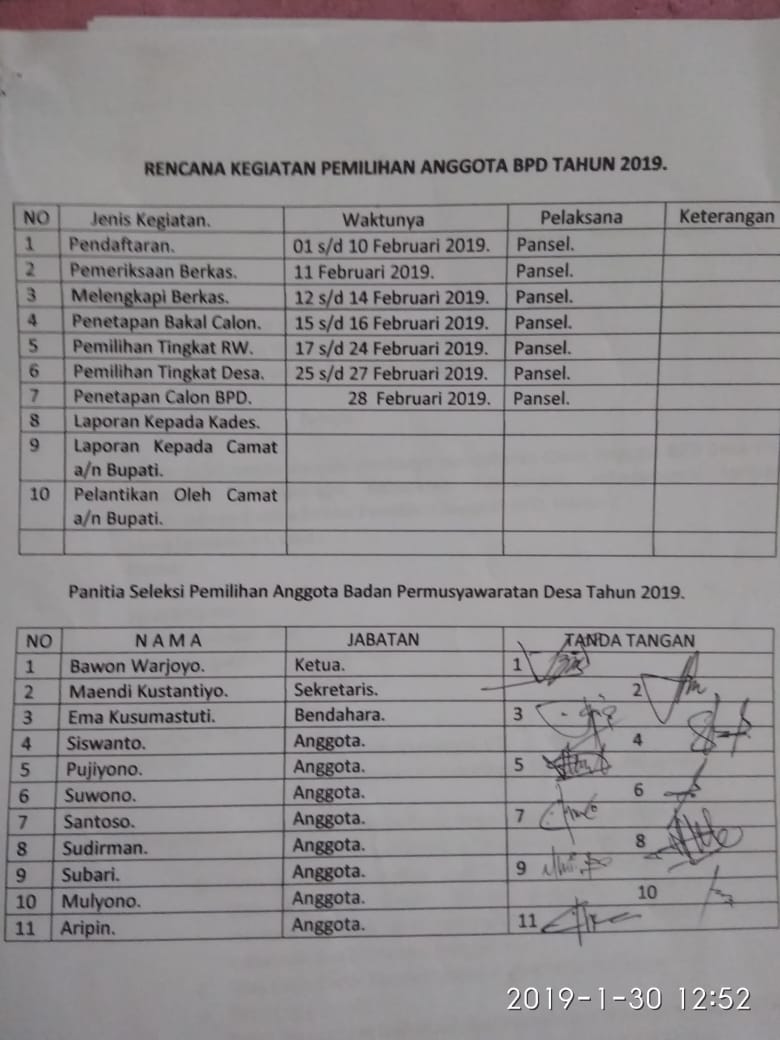 RENCANA KEGIATAN PEMILIHAN ANGGOTA BPD TAHUN 2019.
NO Jenis Kegiatan. Waktunya Pelaksana Keterangan
1 Pendaftaran. 01 s/d 10 Februari 2019. Pansel.
2 Pemeriksaan Berkas. 11 Februari 2019. Pansel.
3 Melengkapi Berkas. 12 s/d 14 Februari 2019. Pansel.
4 Penetapan Bakal Calon. 15 s/d 16 Februari 2019. Pansel.
5 Pemilihan Tingkat RW. 17 s/d 24 Februari 2019. Pansel.
6 Pemilihan Tingkat Desa. 25 s/d 27 Februari 2019. Pansel.
7 Penetapan Calon BPD. 28 Februari 2019. Pansel.
8 Laporan Kepada Kades.
9 Laporan Kepada Camat
a/n Bupati.
10 Pelantikan Oleh Camat
a/n Bupati.
Panitia Seleksi Pemilihan Anggota Badan Permusyawaratan Desa Tahun 2019.
NO N A M A JABATAN TANDA TANGAN
1 Bawon Warjoyo. Ketua. 1
2 Maendi Kustantiyo. Sekretaris. 2
3 Ema Kusumastuti. Bendahara. 3
4 Siswanto. Anggota. 4
5 Pujiyono. Anggota. 5
6 Suwono. Anggota. 6
7 Santoso. Anggota. 7
8 Sudirman. Anggota. 8
9 Subari. Anggota. 9
10 Mulyono. Anggota. 10
11 Aripin. Anggota. 11
2019-1-30 12:52